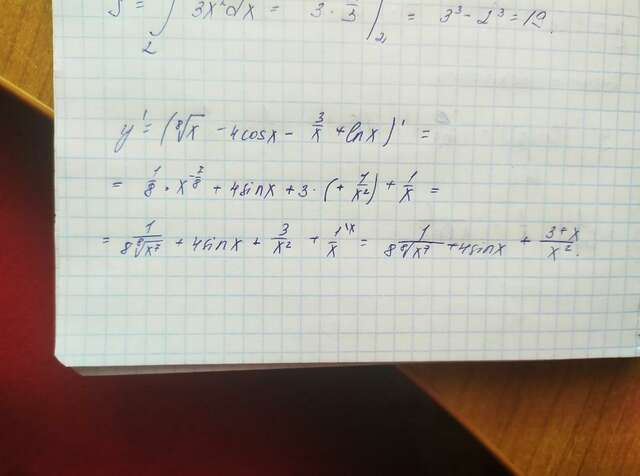 S = ∫₂ 3x²dx = 3 · ‾3 |₂ = 3³ - 2³ = 19.
y' = (⁸√x - 4cosx - 3/x + lnx)' =
= 1/8 · x^(-7/8) + 4sinx + 3 · (+ 1/x²) + 1/x =
= 1/(8⁸√x⁷) + 4sinx + 3/x² + 1^(\x)/x = 1/(8⁸√x⁷) + 4sinx + (3+x)/x².